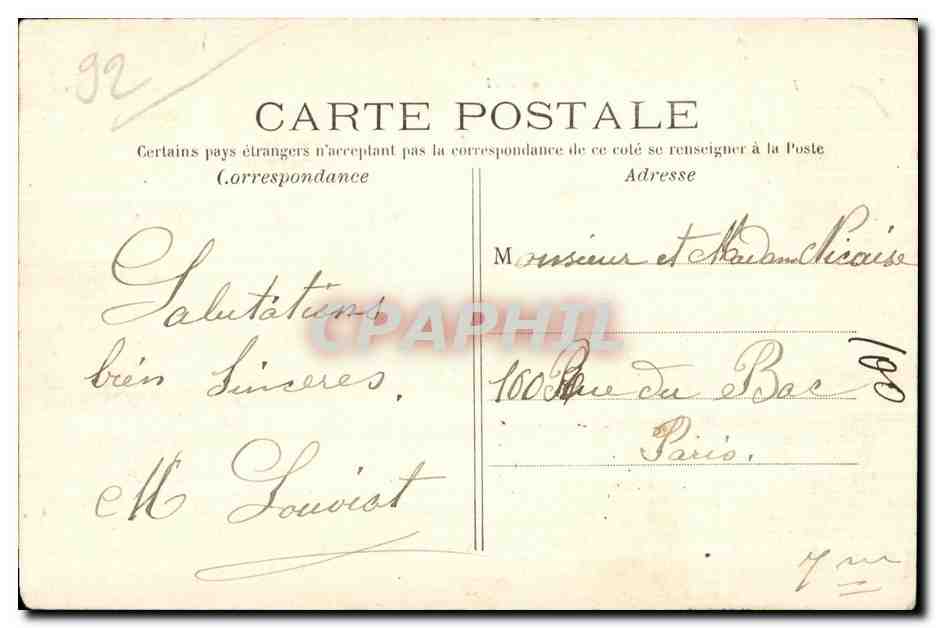 92
CARTE POSTALE
Certains pays étrangers n'acceptant pas la correspondance de ce coté se renseigner à la Poste
Correspondance
Adresse
Salutations
bien Sincères.
M Louviot
Monsieur et Madam Nicaise
100 Rue du Bac
Paris.
100
CPAPHIL